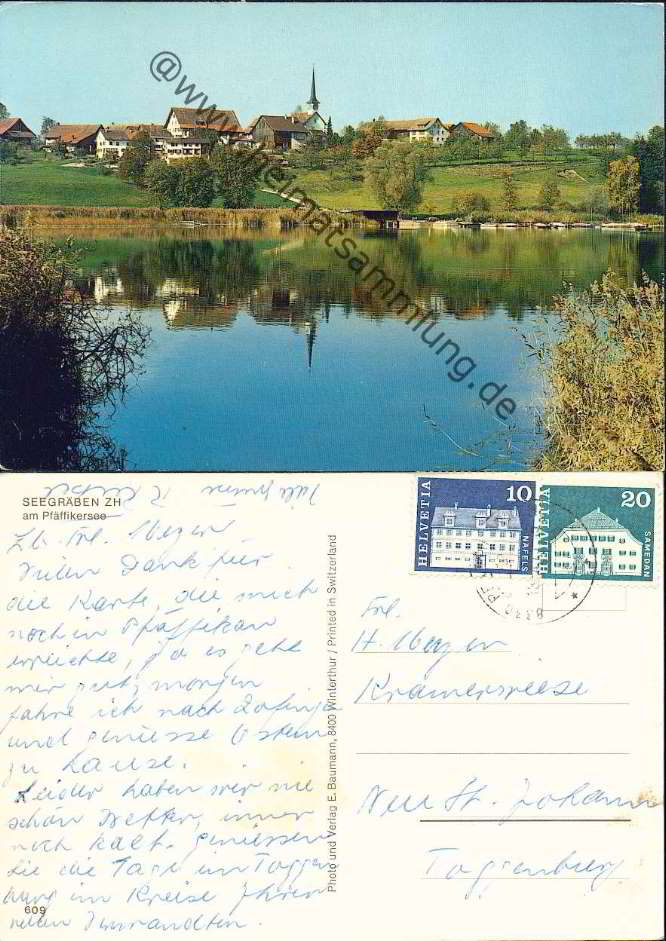 @www.heimatsammlung.de
SEEGRÄBEN ZH
am Pfäffikersee
Lb. Frl. Meyer
Vielen Dank für
die Karte, die mich
noch in Pfäffikon
erreichte, ja es geht
mir gut, morgen
fahre ich nach Zofingen
und geniesse Ostern
zu Hause.
Leider haben wir nie
schön Wetter, immer
noch kalt. Geniessen
Sie die Tage im Toggen
burg im Kreise Ihrer
netten Verwandten.
Viele Grüsse
609
Photo und Verlag E. Baumann, 8400 Winterthur / Printed in Switzerland
HELVETIA 10 NÄFELS
HELVETIA 20 SAMEDAN
8330
Frl.
H. Meyer
Krämerswese
Neu St. Johann
Toggenburg